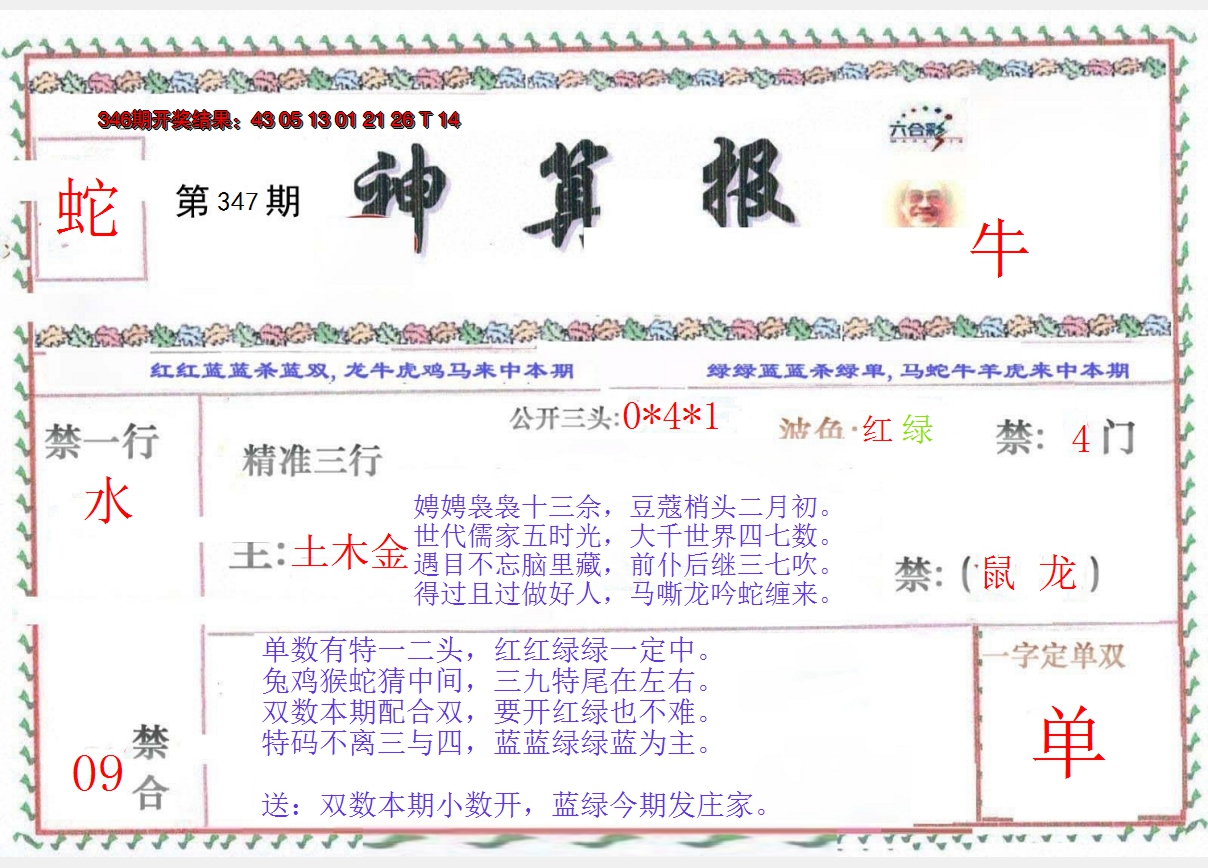 346期开奖结果：43 05 13 01 21 26 T 14
六合彩
蛇
第 347 期
神算报
牛
红红蓝蓝杀蓝双,龙牛虎鸡马来中本期
绿绿蓝蓝杀绿单,马蛇牛羊虎来中本期
禁一行
水
精准三行
主:土木金
公开三头:0*4*1
波色:红 绿
禁: 4 门
娉娉袅袅十三余，豆蔻梢头二月初。
世代儒家五时光，大千世界四七数。
遇目不忘脑里藏，前仆后继三七吹。
得过且过做好人，马嘶龙吟蛇缠来。
禁:(鼠 龙)
单数有特一二头，红红绿绿一定中。
兔鸡猴蛇猜中间，三九特尾在左右。
双数本期配合双，要开红绿也不难。
特码不离三与四，蓝蓝绿绿蓝为主。
送：双数本期小数开，蓝绿今期发庄家。
09
禁合
一字定单双
单